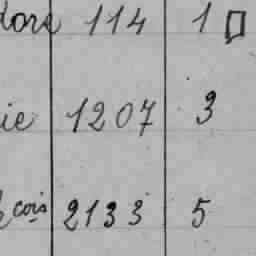 dore 114 1
ie 1207 3
cois 2133 5